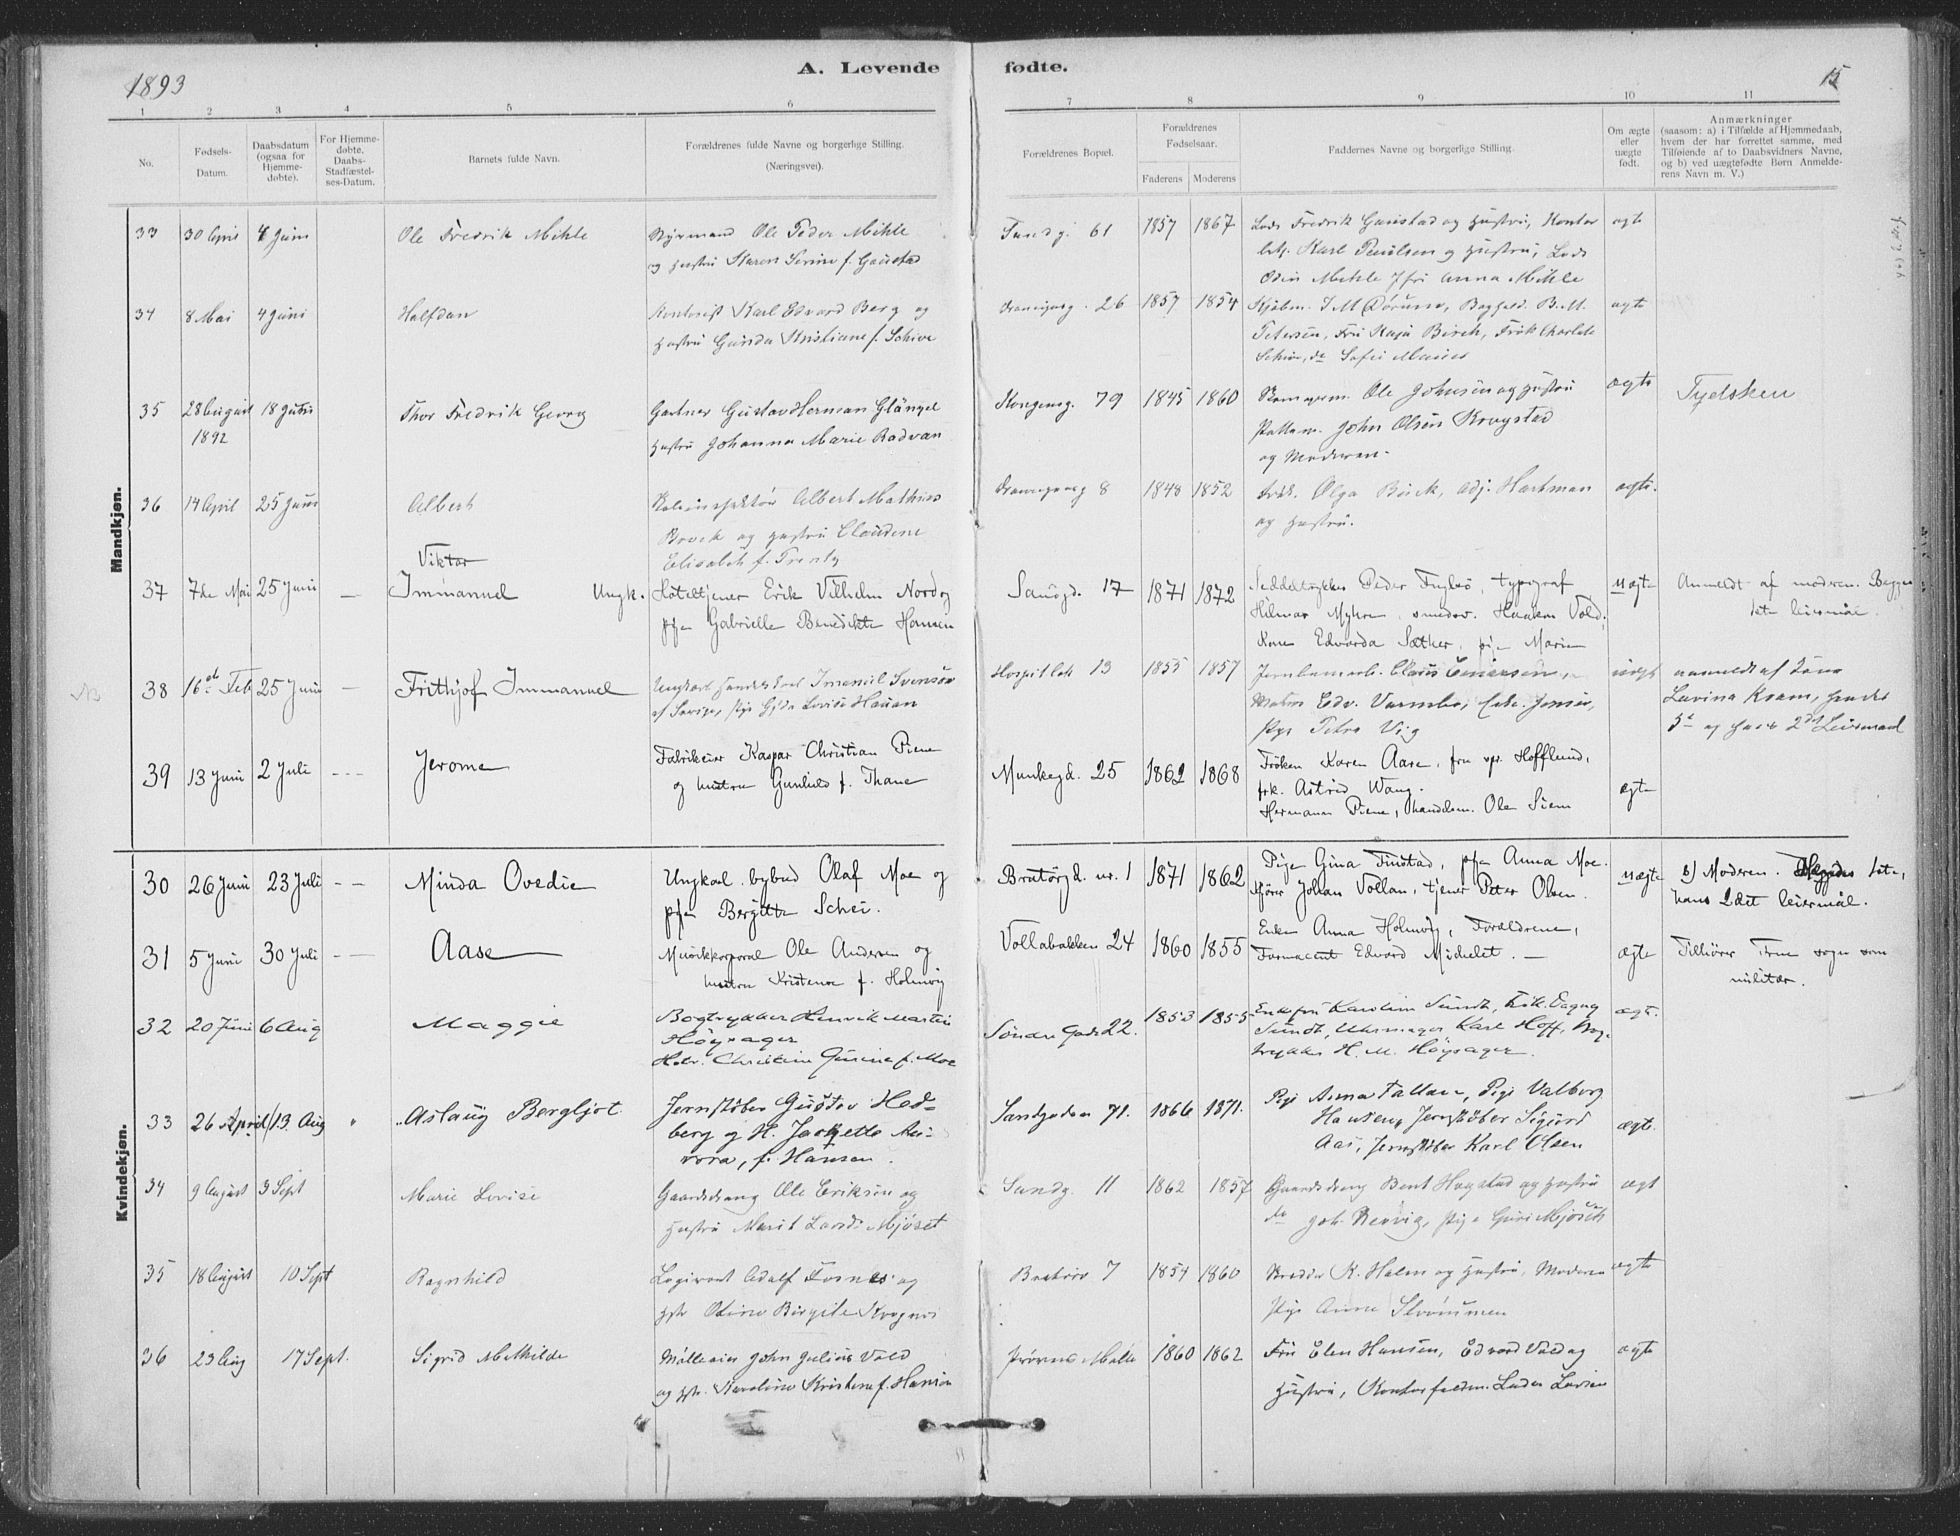 1893
A. Levende fødte.
15
1 2 3 4 5 6 7 8 9 10 11
No.
Fødsels-
Datum.
Daabsdatum
(ogsaa for
Hjemme-
døbte).
For Hjemme-
døbte,
Daabs-
Stadfæstel-
ses-Datum.
Barnets fulde Navn.
Forældrenes fulde Navne og borgerlige Stilling.
(Næringsvei).
Forældrenes Bopæl.
Forældrenes
Fødselsaar.
Faderens
Moderens
Faddernes Navne og borgerlige Stilling.
Om ægte
eller
uægte
født.
Anmærkninger
(saasom: a) i Tilfælde af Hjemmedaab,
hvem der har forrettet samme, med
Tilføiende af to Daabsvidners Navne,
og b) ved uægtefødte Børn Anmelde-
rens Navn m. V.)
Mandkjøn.
33 30 April 4 Juni Ole Fredrik Mihle Styrmand Ole Peder Mihle
og Hustru Karen Serine f. Gaustad
61 1857 1867 Lods Fredrik Gaustad og Hustru, Kontor
Karl Paulsen og Hustru, Lods
Odin Mihle Anna Mihle
ægte
34 8 Mai 4 Juni Halfdan Kontorist Karl Edvard Berg og
Hustru Gunda Kristiane f. Schive
Dronningensg. 26 1857 1854 J M Dørum, B. M.
Petersen, Fru Kaja Birch, Frøk Charlotte
Schive, do Sofie
ægte
35 28 August 18 Juni Thor Fredrik Georg Gartner Gustav Herman Glängel
1892 Hustru Johanna Marie Radvan
Kongensg. 79 1845 1860 Ole Johnsen og Hustru
John Olsen Krogstad
og Moderen.
ægte Tydsken
36 14 April 25 Juni Albert Albert Mathias
Brock og Hustru Claudine
Elisabeth f.
Dronningensg 8 1848 1852 Frøk. Olga Brick, Adj. Hartman
og Hustru.
ægte.
Viktor
37 7de Mai 25 Juni — Immanuel Ungk. Hoteltjener Erik Vilhelm Nord og
pige Gabrielle Benedikte Hansen
Sandgd. 17 1871 1872 Seddeltrykker Peder Fuglsø, typograf
Hilmar Myhre, smedsv. Haakon Vold,
Kone Edvarda Sæther, pige Marie
uægte Anmeldt af moderen. Begges
1ste leiermål.
NB 38 16de Feb 25 Juni — Frithjof Immanuel Ungkarl Svensøn
af Sverige, Pige Gjda Lovise Hauan
13 1855 1857 Jernbanearb. Claus Einersen,
Edv. Varmbo, Enke Jensen,
Pige Petra Vig
uægt anmeldt af Kone
Lavina Kvam, hendes
3de og hans 2det Leiermaal
39 13 Juni 2 Juli — Jerome Fabrikeier Kaspar Christian Piene
og hustru Gunhild f. Thane
Munkegd. 25 1862 1868 Frøken Karen Aase, fru Hofflund,
frk. Astrid Wang.
Hermann Piene, handelsm. Ole Siem
ægte
Kvindekjøn.
30 26 Juni 23 Juli — Minda Ovedie Ungkarl bybud Olaf Moe og
pige Bergitte Schei.
Bratørgd. nr. 1 1871 1862 Pige Gina Finstad, pige Anna Moe.
Johan Vollan, tjener Peter Olsen.
uægte b) Moderen. 1ste,
hans 2det leiermål.
31 5 Juni 30 Juli — Aase Musikkorporal Ole Andersen og
hustru Kristense f. Holmvig
Vollabakken 24 1860 1855 Enke Anna Holmvig, Forældrene,
Farmaceut Edvard Michelet. —
ægte Tilhører sogn som
militær.
32 20 Juni 6 Aug Maggie Bogtrykker Henrik Martin
Høysager
Hstr. Christine Gurine f. Moe
Søndre Gade 22. 1853 1855 Enkefru Karoline Sundt, Frk. Dagny
Sundt, Uhrmager Karl Hoff, Bog-
trykker H. M. Høysager.
ægt.
33 26 April 13. Aug " Aslaug Bergljot Jernstøber Gustav Hed-
berg og H. Jackette Au-
rora, f. Hansen.
Sandgaden 71. 1866 1871. Pige Anna Fallan, Pige Valborg
Hansen, Jernstøber Sigurd
Aas, Jernstøber Karl Olsen
ægte.
34 9 August 3 Sept Marie Lovise Gaardsdreng Ole Eriksen og
Hustru Marit Larsd. Mjøset
Sandg. 11 1862 1857 Gaardsdreng Bent Hogstad og Hustru
do Joh. Rervig, Pige Guri Mjøset
ægt
35 18 August 10 Sept Ragnhild Logivert Adolf Fosnes og
Hstr Otine Birgite
Bratør 7 1854 1860 K. Holm og Hustru, Moderen
Pige Anna
ægte
36 23 Aug 17 Sept. Sigrid Mathilde Mølleeier John Julius Vold
og Hstr. Karoline Kristine f. Hansen
1860 1862 Fru Elen Hansen, Edvard Vold og
Hustru, Lader Larsen
ægte